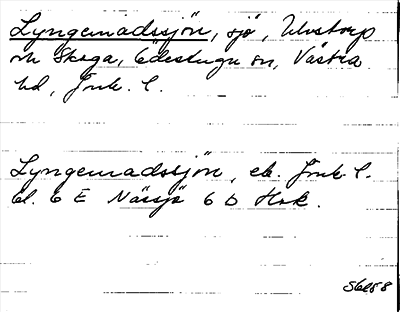 Lyngemadssjön, sjö, Ulvstorp
o Skoga, Edestuga sn, Västra
hd, Jönk. l.
Lyngemadssjön, ek. Jönk. l.
bl. 6 E Nässjö 6 D Hok.